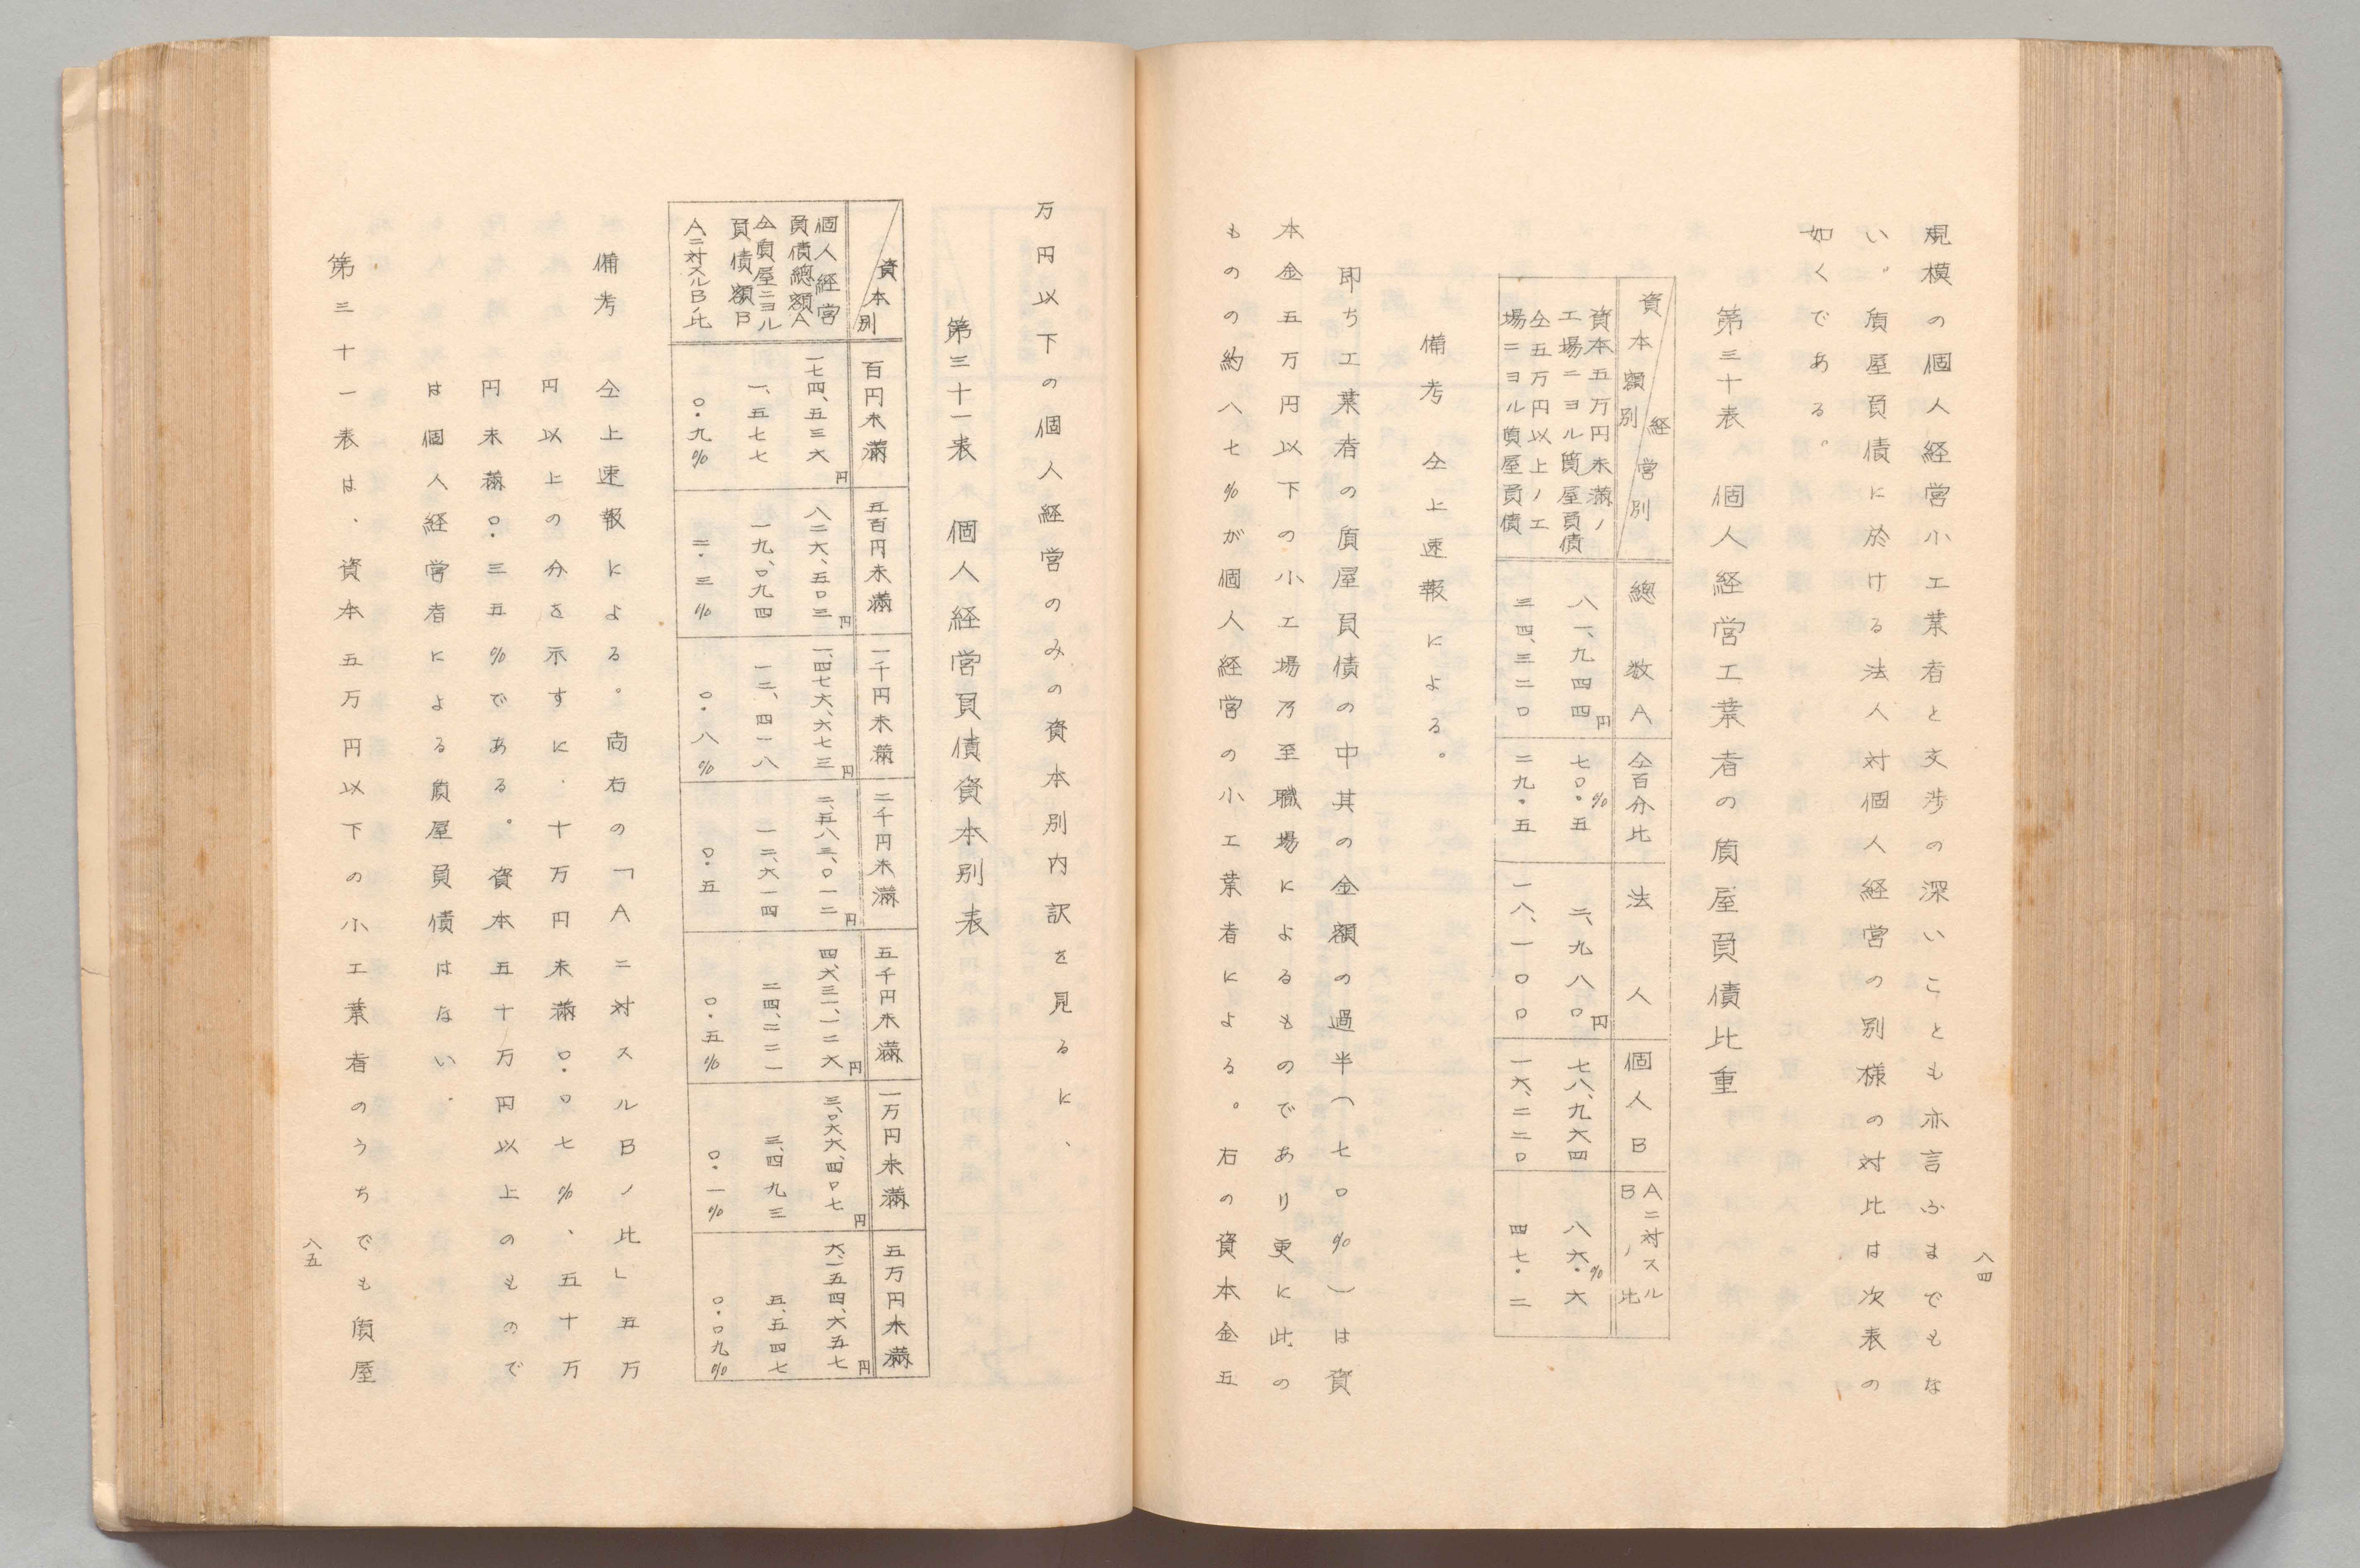 八四
規模の個人経営小工業者と交渉の深いことも亦言ふまでもな
い。質屋負債に於ける法人対個人経営の別様の対比は次表の
如くである。
第三十表 個人経営工業者の質屋負債比重
資本額別 経営別
総数A
仝百分比
法人
個人B
Aニ対スルBノ比
資本五万円未満ノ工場ニヨル質屋負債
八一、九四四円
七〇・五%
二、九八〇円
七八、九六四
八六・六%
仝五万円以上ノ工場ニヨル質屋負債
三四、三二〇
二九・五
一八、一〇〇
一六、二二〇
四七・二
備考 仝上速報による。
即ち工業者の質屋負債の中其の金額の過半(七〇%)は資
本金五万円以下の小工場乃至職場によるものであり更に此の
ものの約八七%が個人経営の小工業者による。右の資本金五
万円以下の個人経営のみの資本別内訳を見るに、
第三十一表 個人経営負債資本別表
資本別
百円未満
五百円未満
一千円未満
二千円未満
五千円未満
一万円未満
五万円未満
個人経営負債總額A
一七四、五三六円
八二六、五〇三円
一、四七六、六七三円
二、五八三、〇一二円
四、六三一、一二六円
三、〇六六、四〇七円
六、一五四、六五七円
仝質屋ニヨル負債額B
一、五七七
一九、〇九四
一二、四一八
一二、六一四
二四、二二一
三、四九三
五、五四七
Aニ対スルBノ比
〇・九%
二・三%
〇・八%
〇・五
〇・五%
〇・一%
〇・〇九%
備考 仝上速報による。尚右の「Aニ対スルBノ比」五万
円以上の分を示すに、十万円未満〇・〇七%、五十万
円未満〇・三五%である。資本五十万円以上のもので
は個人経営者による質屋負債はない.
第三十一表は、資本五万円以下の小工業者のうちでも質屋
八五